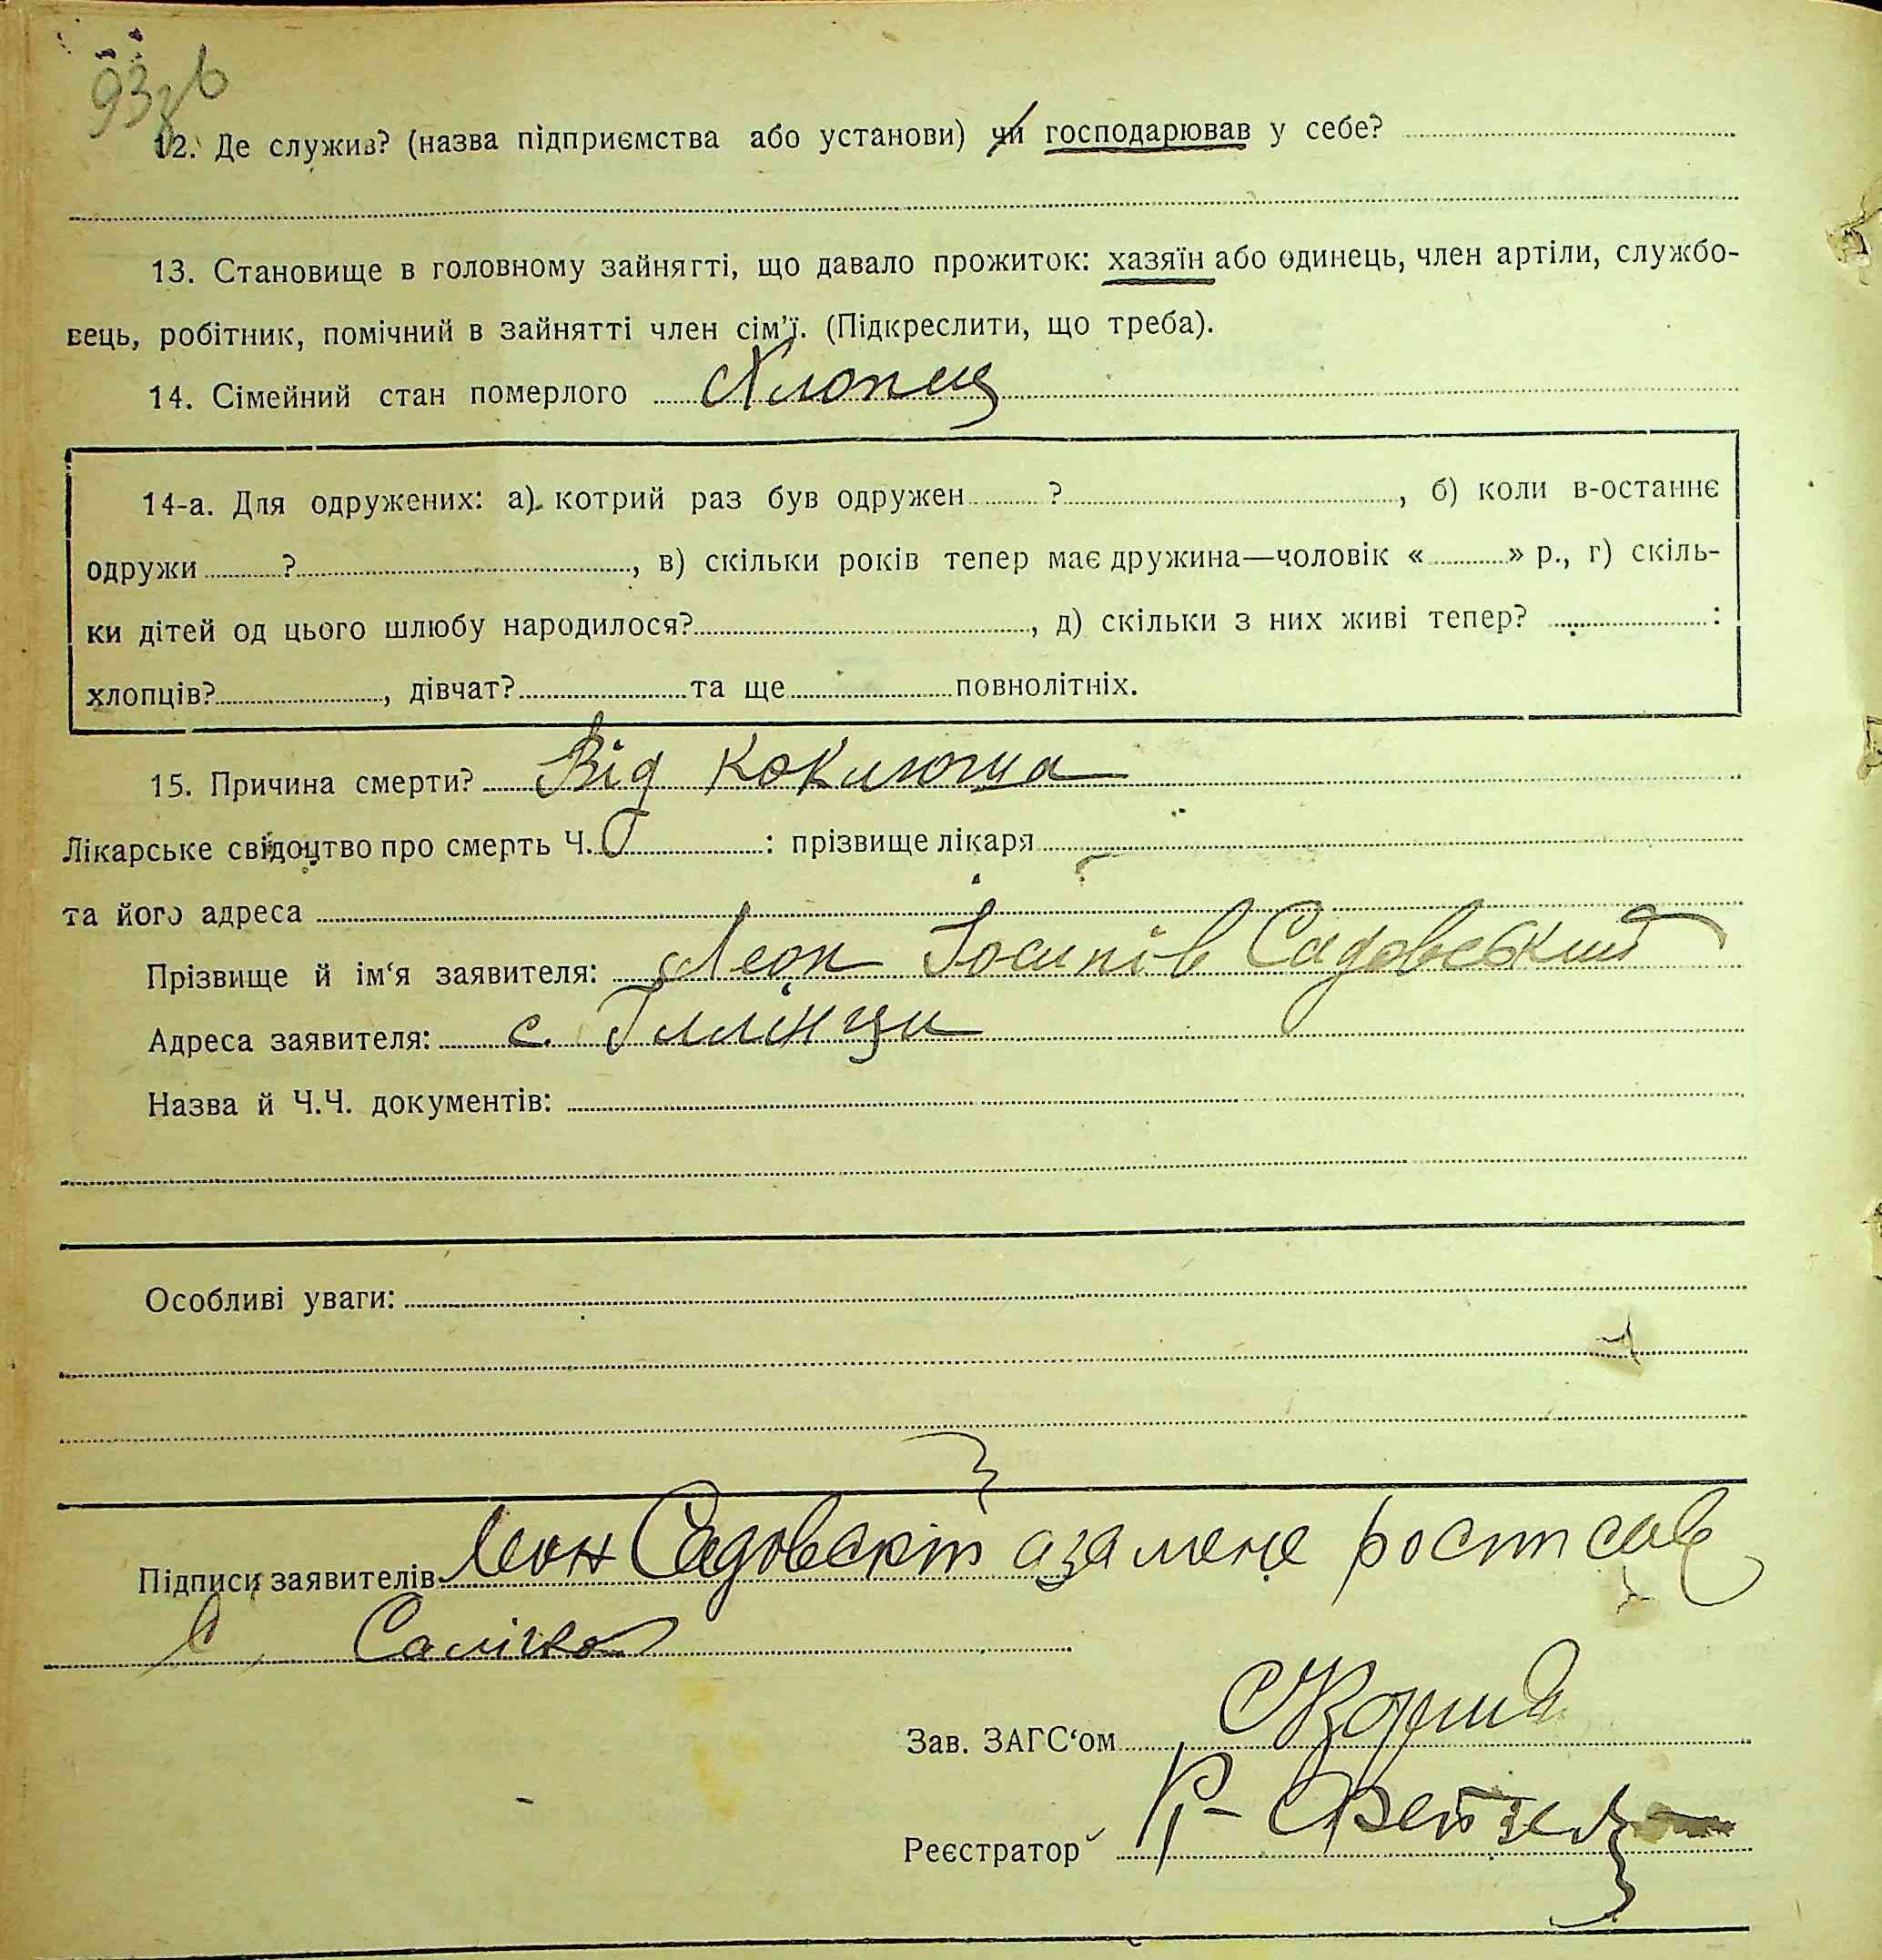 93зв
12. Де служив? (назва підприємства або установи) чи господарював у себе?
13. Становище в головному зайнятті, що давало прожиток: хазяїн або одинець, член артіли, службо-
вець, робітник, помічний в зайнятті член сім’ї. (Підкреслити, що треба).
14. Сімейний стан померлого Хлопец
14-а. Для одружених: а) котрий раз був одружен ? , б) коли в-останнє
одружи ? , в) скільки років тепер має дружина—чоловік « » р., г) скіль-
ки дітей од цього шлюбу народилося? , д) скільки з них живі тепер? :
хлопців? , дівчат? та ще повнолітніх.
15. Причина смерти? Від коклюша
Лікарське свідоцтво про смерть Ч. : прізвище лікаря
та його адреса
Прізвище й ім‘я заявителя: Леон Йосипів Садовський
Адреса заявителя: с. Іллінци
Назва й Ч.Ч. документів:
Особливі уваги:
Підписи заявителів Леон Садовскіт а за мене ростсав
Зав. ЗАГС‘ом
Реєстратор